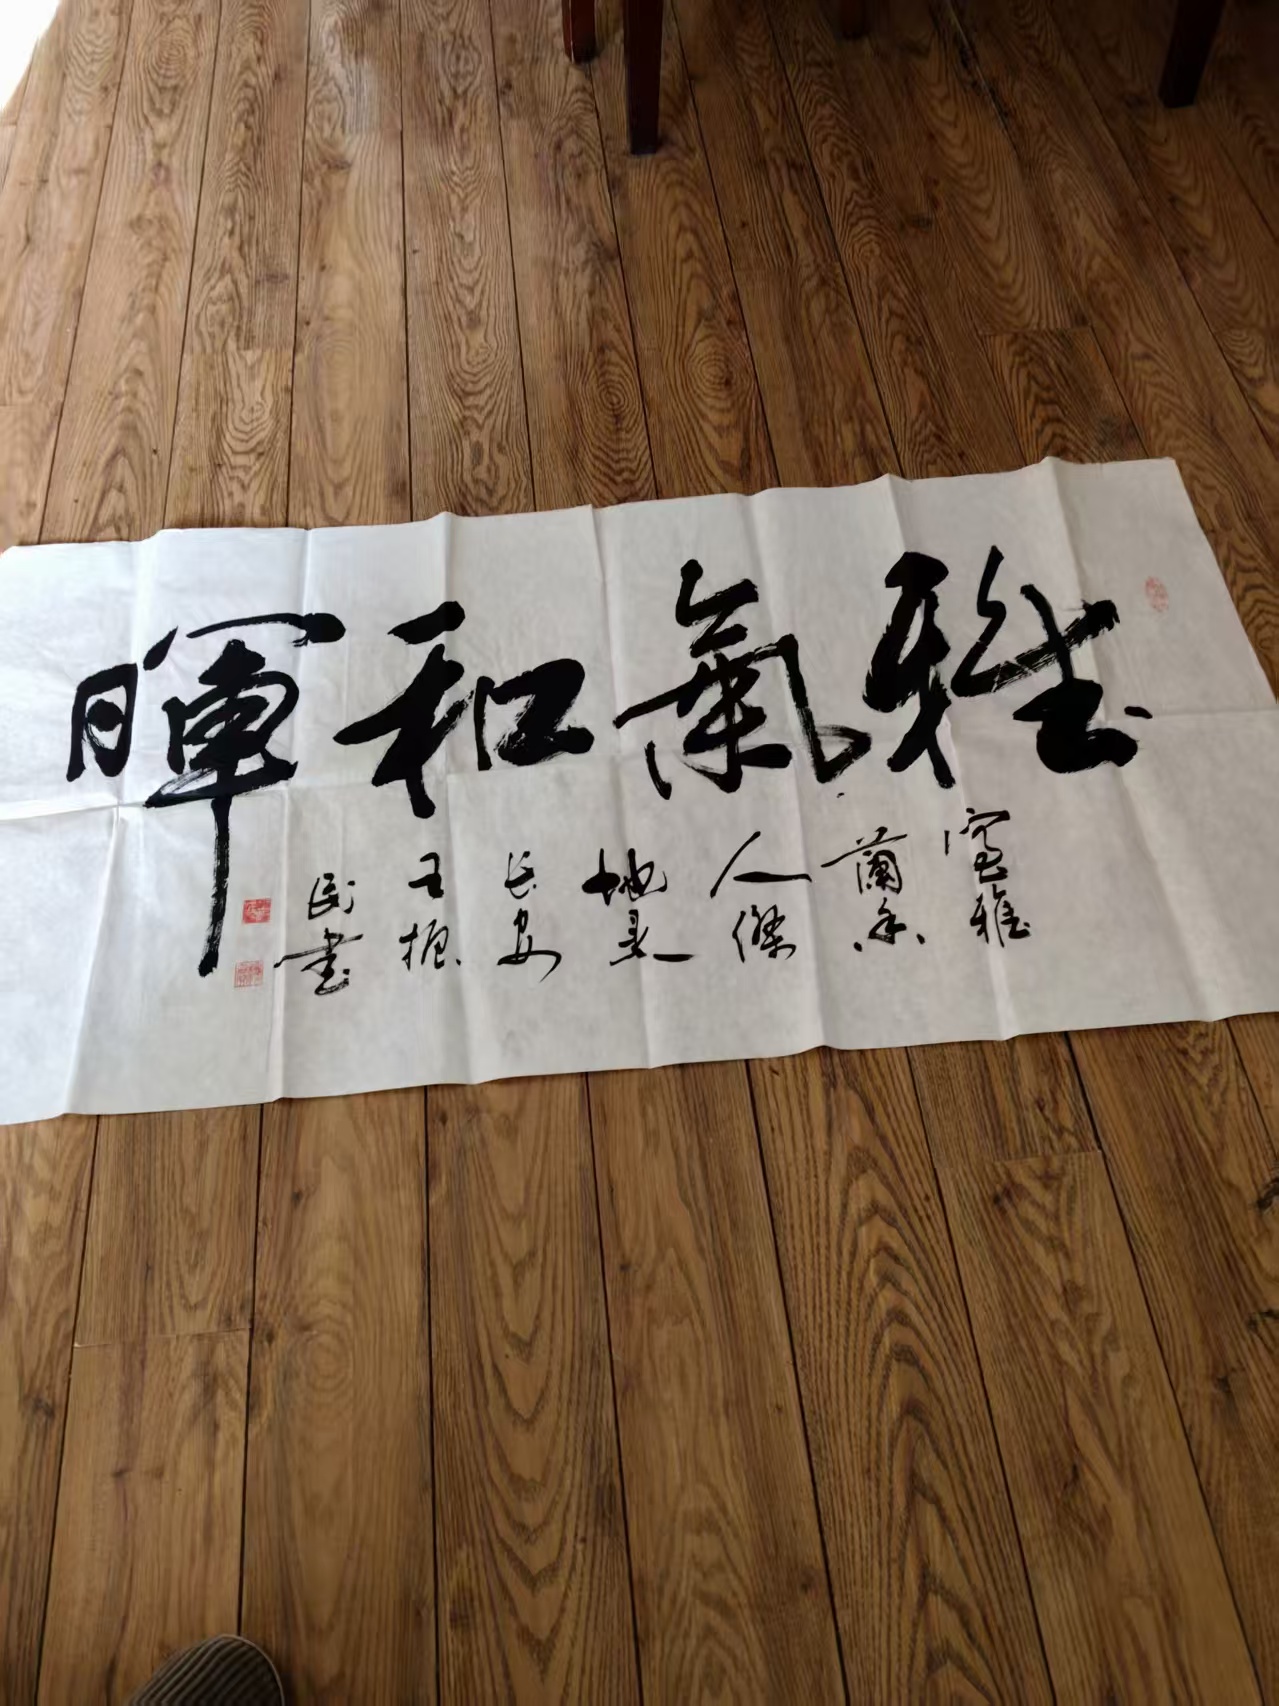 雅氣和暉
室雅
蘭香
人傑
地靈
長安
王振
民書